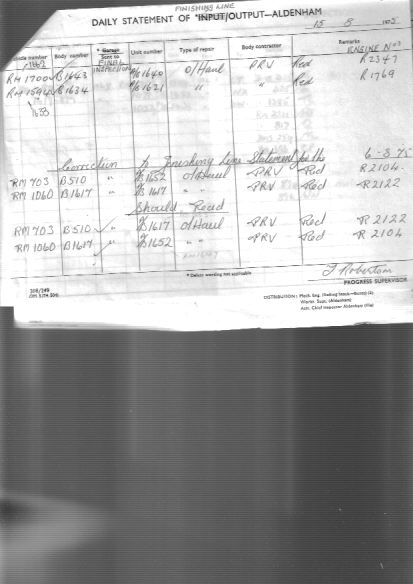 FINISHING LINE
DAILY STATEMENT OF *INPUT/OUTPUT—ALDENHAM
15 8 1975
number Body number * Garage Sent to Unit number Type of repair Body contractor Remarks
FINAL INSPECTION ENGINE Nos
RM 1700 B1443 1640 O/Haul PRV Red R2347
RM 1594 B1634 1621 " " Red R1769
1633
Correction to Finishing Line Statement for the 6-8-75
RM 703 B510 " 1652 O/Haul PRV Red R2104
RM 1060 B1617 " 1617 " " PRV Red R2122
Should Read
RM 703 B510 " 1617 O/Haul PRV Red R2122
RM 1060 B1617 " 1652 " " PRV Red R2104
* Delete wording not applicable
J Robertson
PROGRESS SUPERVISOR
DISTRIBUTION: Mech. Eng. (Rolling Stock—Buses) (2)
Works Supt. (Aldenham)
Asst. Chief Inspector Aldenham (file)